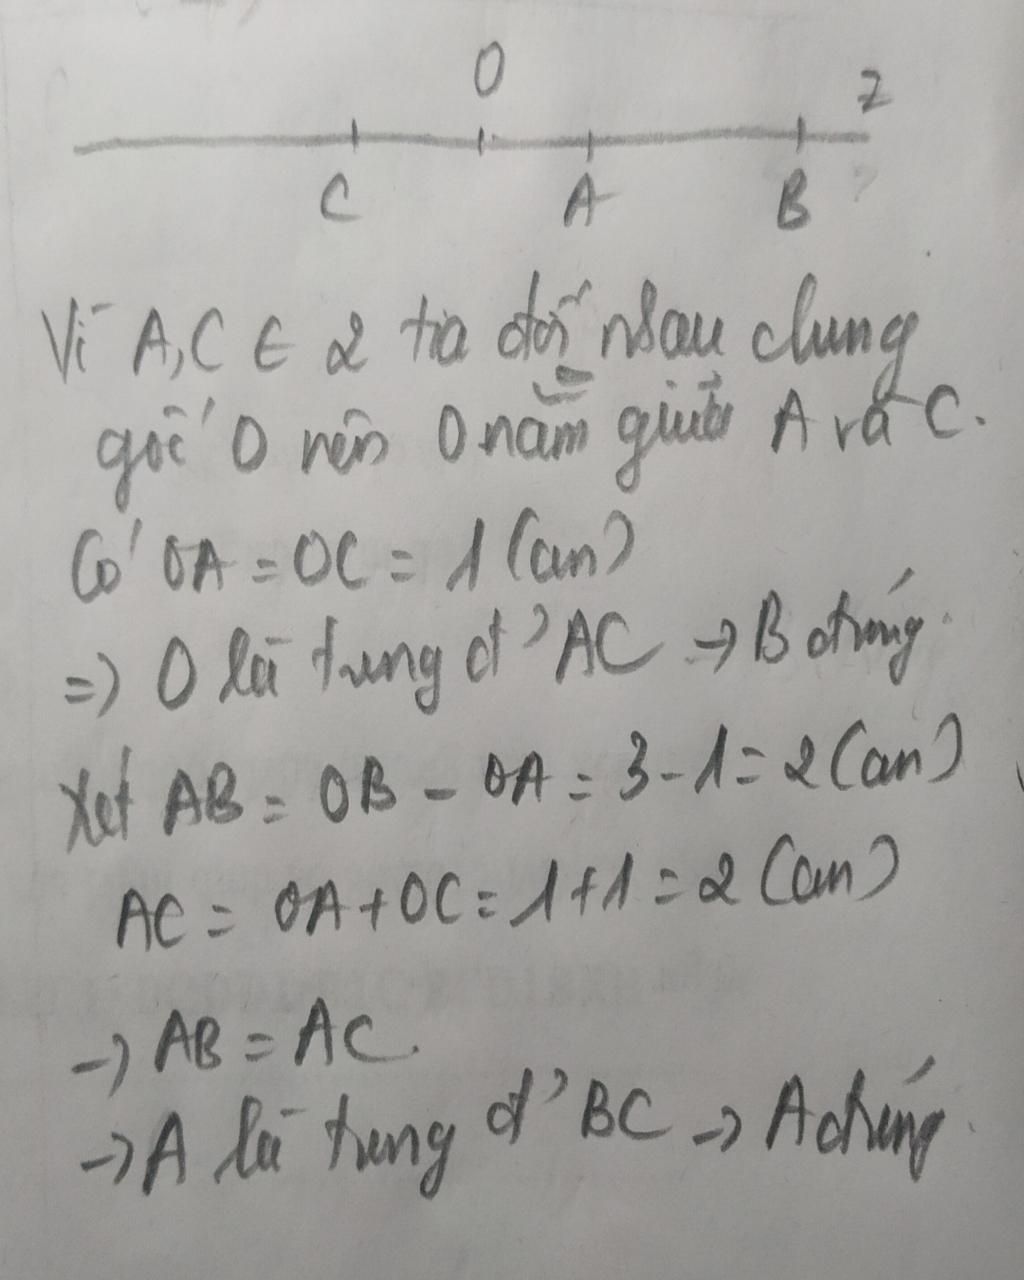 O
z
C A B
Vì A, C ∈ 2 tia đối nhau chung
gốc O nên O nằm giữa A và C.
Có OA = OC = 1 (cm)
=> O là trung đ' AC -> B đúng.
Xét AB = OB - OA = 3 - 1 = 2 (cm)
AC = OA + OC = 1 + 1 = 2 (cm)
-> AB = AC.
-> A là trung đ' BC -> A đúng.